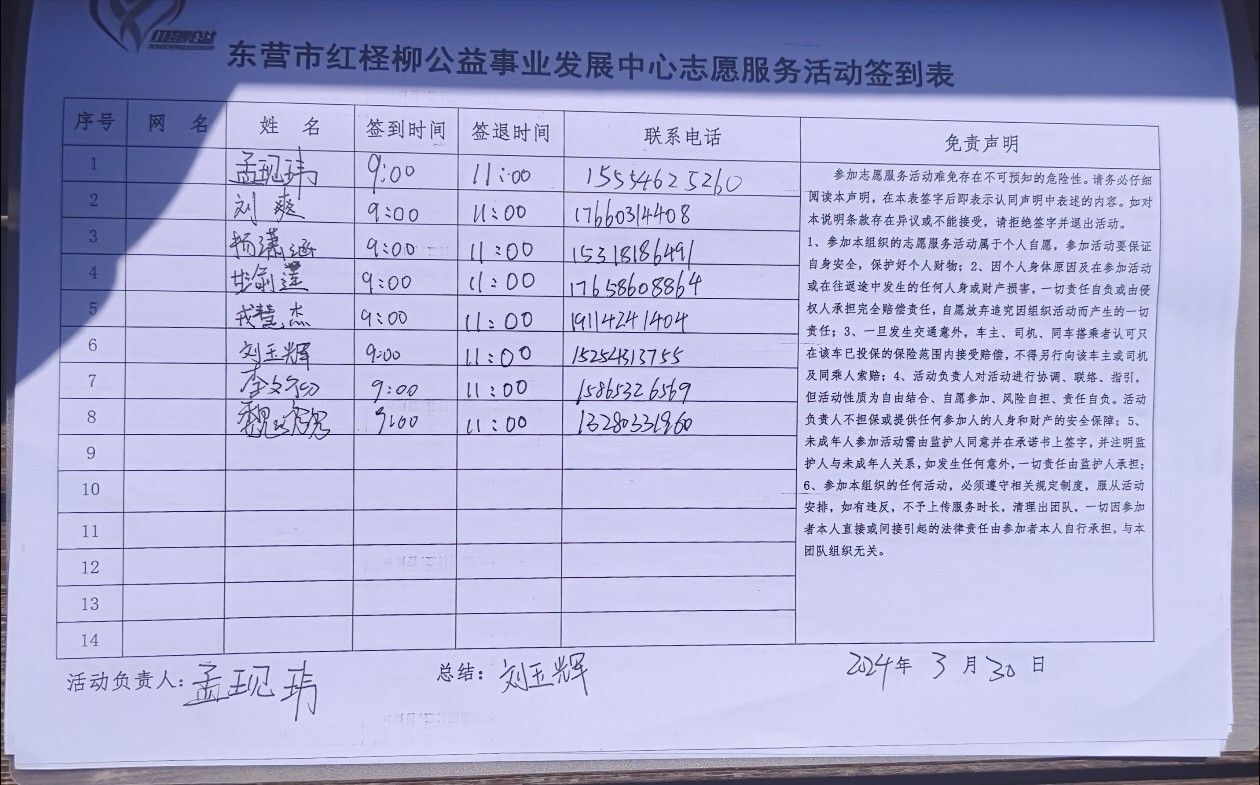 东营市红柽柳公益事业发展中心志愿服务活动签到表
序号 网 名 姓 名 签到时间 签退时间 联系电话 免责声明
1 孟现玮 9:00 11:00 15554625260
2 刘爽 9:00 11:00 17660314408
3 杨潇涵 9:00 11:00 15318186491
4 9:00 11:00 17658608864
5 戎慧杰 9:00 11:00 19114241404
6 刘玉辉 9:00 11:00 15254313755
7 李文 9:00 11:00 15865326569
8 魏 9:00 11:00 13280331960
9
10
11
12
13
14
参加志愿服务活动难免存在不可预知的危险性。请务必仔细
阅读本声明，在本表签字后即表示认同声明中表述的内容。如对
本说明条款存在异议或不能接受，请拒绝签字并退出活动。
1、参加本组织的志愿服务活动属于个人自愿，参加活动要保证
自身安全，保护好个人财物；2、因个人身体原因及在参加活动
或在往返途中发生的任何人身或财产损害，一切责任自负或由侵
权人承担完全赔偿责任，自愿放弃追究因组织活动而产生的一切
责任；3、一旦发生交通意外，车主、司机、同车搭乘者认可只
在该车已投保的保险范围内接受赔偿，不得另行向该车主或司机
及同乘人索赔；4、活动负责人对活动进行协调、联络、指引，
但活动性质为自由结合、自愿参加、风险自担、责任自负。活动
负责人不担保或提供任何参加人的人身和财产的安全保障；5、
未成年人参加活动需由监护人同意并在承诺书上签字，并注明监
护人与未成年人关系，如发生任何意外，一切责任由监护人承担；
6、参加本组织的任何活动，必须遵守相关规定制度，服从活动
安排，如有违反，不予上传服务时长，清理出团队，一切因参加
者本人直接或间接引起的法律责任由参加者本人自行承担，与本
团队组织无关。
活动负责人：孟现玮 总结：刘玉辉 2024年 3 月 30 日